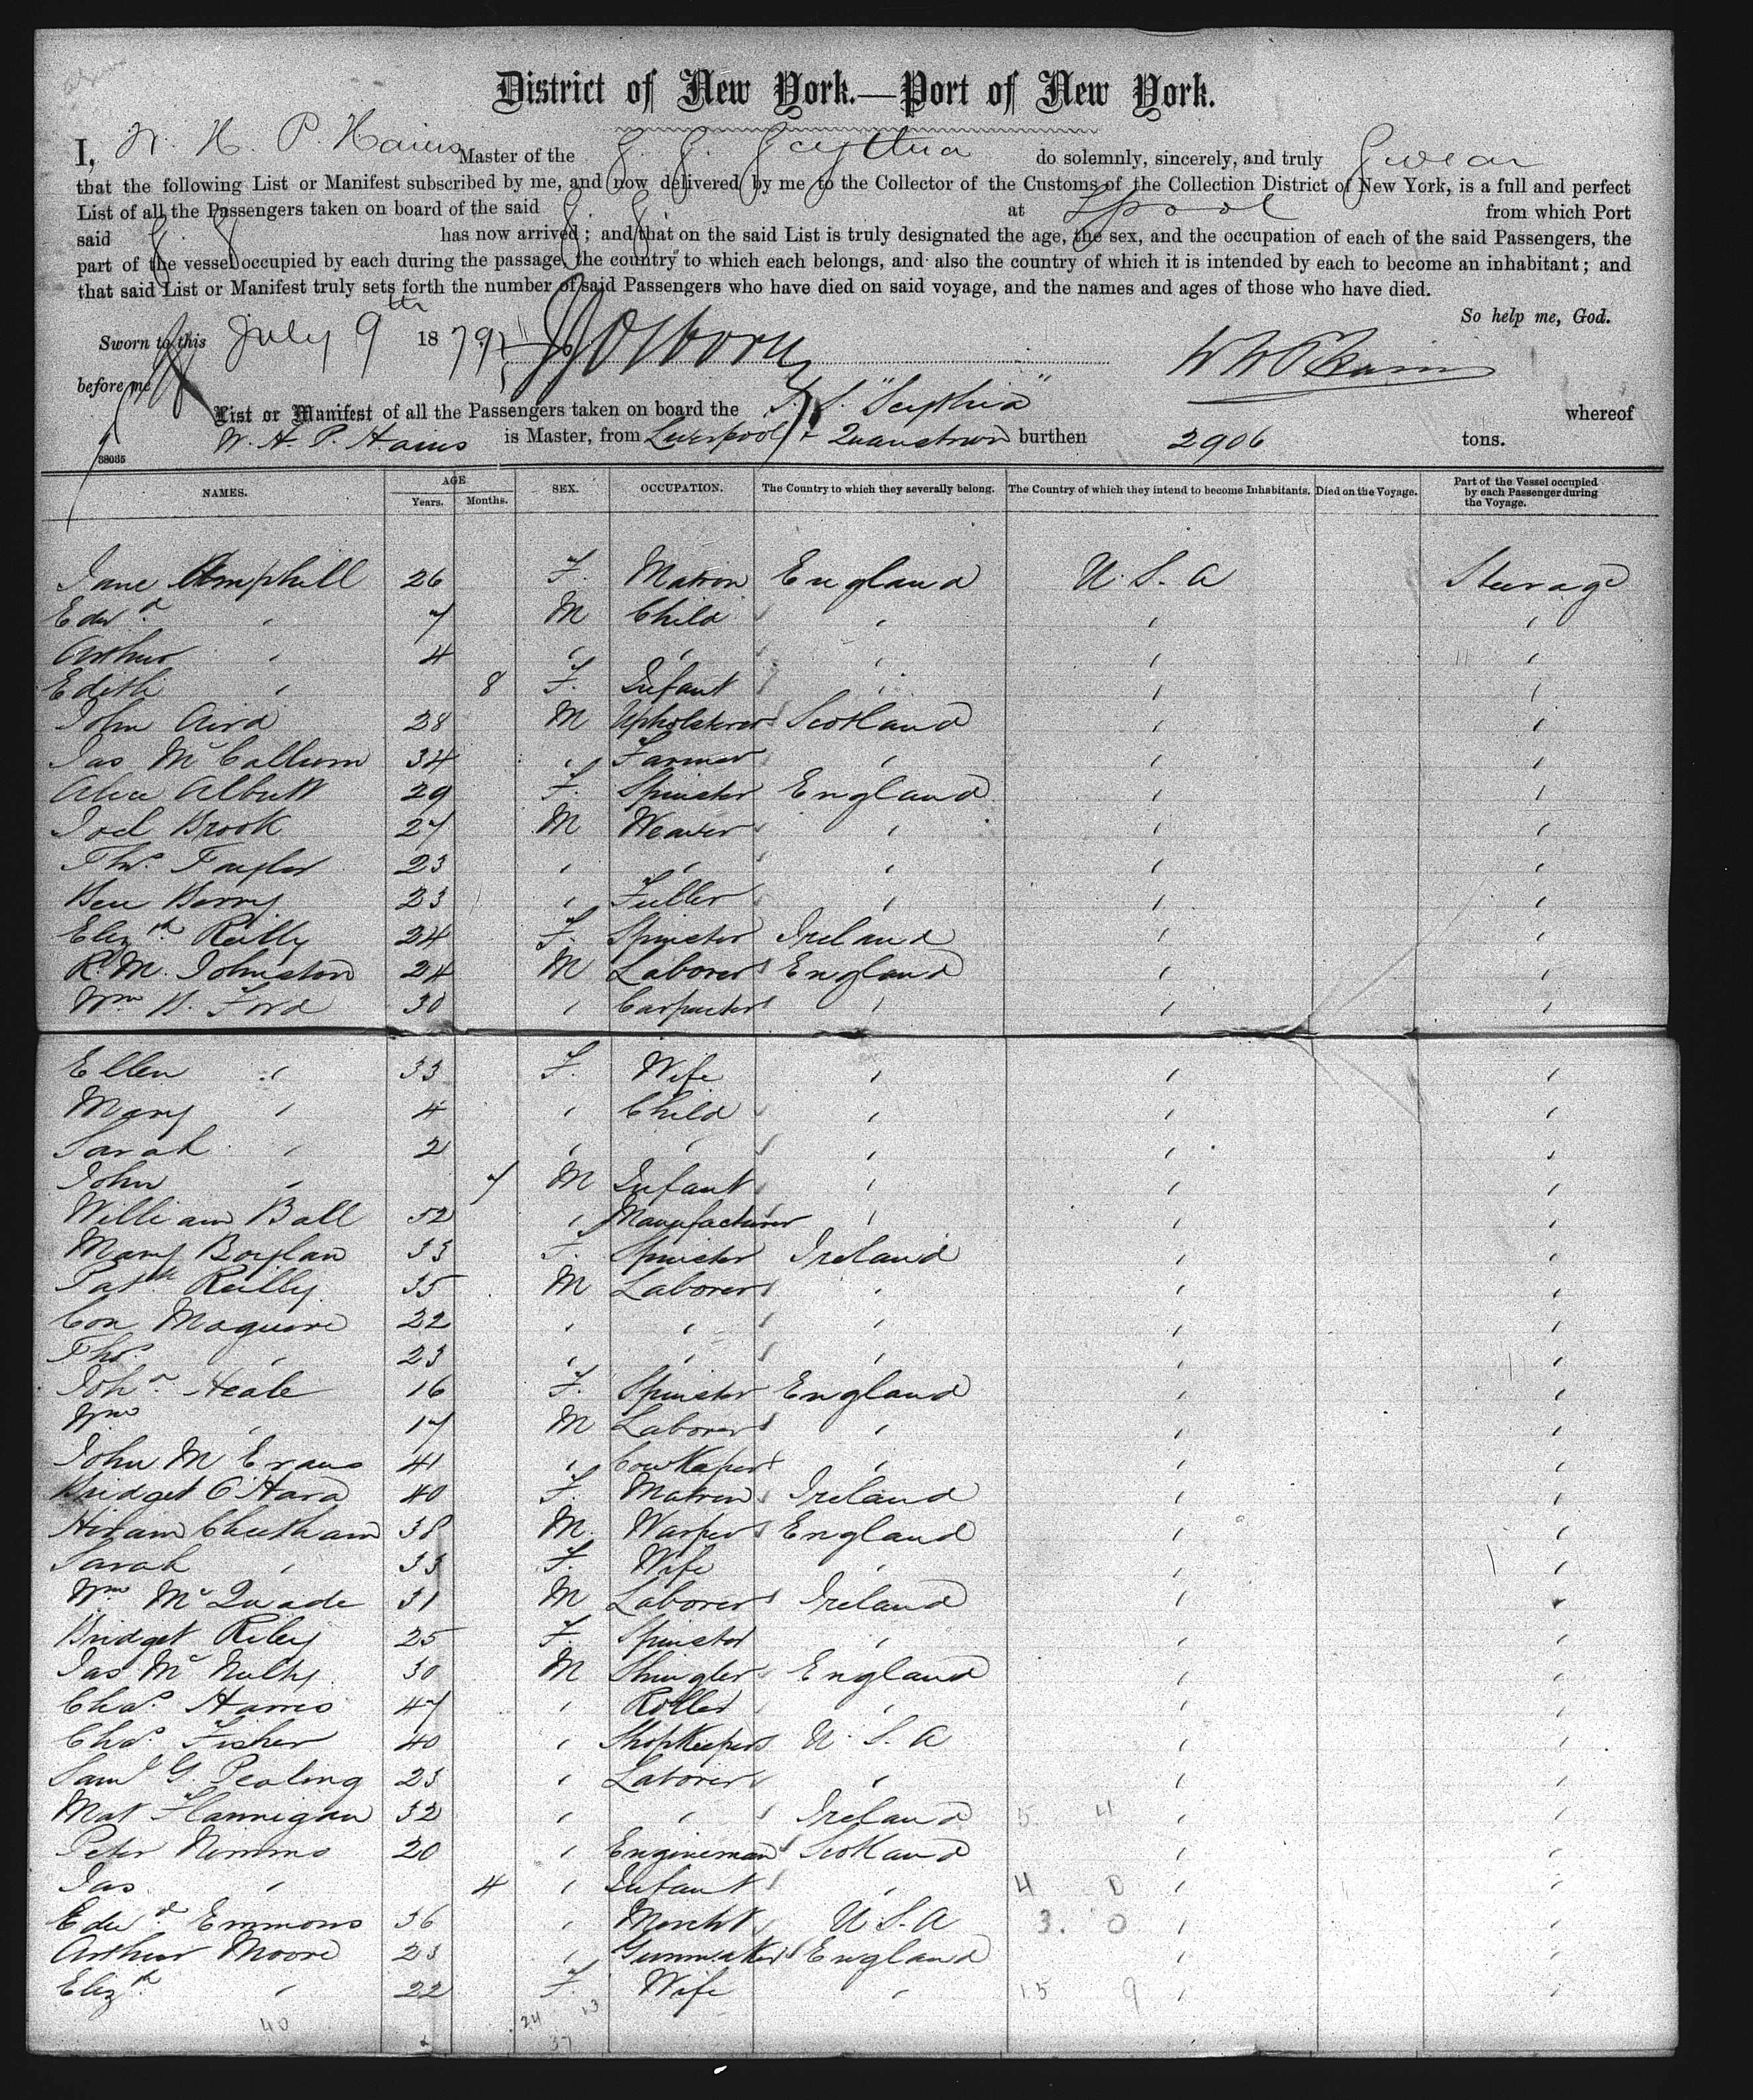 District of New York.—Port of New York.
I, W. H. P. Hains Master of the S. S. Scythia do solemnly, sincerely, and truly Swear
that the following List or Manifest subscribed by me, and now delivered by me to the Collector of the Customs of the Collection District of New York, is a full and perfect
List of all the Passengers taken on board of the said S. S. at Lpool from which Port
said S. S. has now arrived; and that on the said List is truly designated the age, the sex, and the occupation of each of the said Passengers, the
part of the vessel occupied by each during the passage, the country to which each belongs, and also the country of which it is intended by each to become an inhabitant; and
that said List or Manifest truly sets forth the number of said Passengers who have died on said voyage, and the names and ages of those who have died.
So help me, God.
Sworn to this July 9th 1879 Osborn W H P Hains
before me
List or Manifest of all the Passengers taken on board the S. S. "Scythia" whereof
W. H. P. Hains is Master, from Liverpool & Queenstown burthen 2906 tons.
38035
NAMES. AGE Years. Months. SEX. OCCUPATION. The Country to which they severally belong. The Country of which they intend to become Inhabitants. Died on the Voyage. Part of the Vessel occupied by each Passenger during the Voyage.
Jane Hemphill 26 F. Matron England U. S. A Steerage
Edwd. " 7 M Child " " "
Arthur " 4 " " " " "
Edith " 8 F. Infant " " "
John Aird 28 M Upholsterer Scotland " "
Jas McCallum 34 " Farmer " " "
Alice Albutt 29 F. Spinster England " "
Joel Brook 27 M Weaver " " "
Thos. Taylor 23 " " " " "
Ben Berry 23 " Fuller " " "
Elizth. Reilly 24 F. Spinster Ireland " "
R. M. Johnston 24 M Laborer England " "
Wm H. Ford 30 " Carpenter " " "
Ellen " 33 F. Wife " " "
Mary " 4 " Child " " "
Sarah " 2 " " " " "
John " 7 M Infant " " "
William Ball 52 " Manufacturer " " "
Mary Boylan 33 F. Spinster Ireland " "
Patk. Reilly 35 M Laborer " " "
Con Maguire 22 " " " " "
Thos. " 23 " " " " "
Joha. Heale 16 F. Spinster England " "
Wm " 17 M Laborer " " "
John M Evans 41 " Cowkeeper " " "
Bridget O'Hara 40 F. Matron Ireland " "
Hiram Cheetham 38 M. Warper England " "
Sarah " 33 F. Wife " " "
Wm McQuade 31 M Laborer Ireland " "
Bridget Riley 25 F. Spinster " " "
Jas McNulty 30 M Shingler England " "
Chas. Harris 47 " Roller " " "
Chas. Fisher 40 " Shopkeeper U. S. A " "
Saml G. Pealing 23 " Laborer " " "
Mat Flannigan 32 " " Ireland 5 4 " "
Peter Nimmo 20 " Engineman Scotland " "
Jas " 4 " Infant " 4 0 " "
Edwd. Emmons 36 " Mercht U. S. A 3. 0 " "
Arthur Moore 23 " Gunmaker England " "
Elizth. " 22 F. Wife " 15 9 " "
40 24 13
37